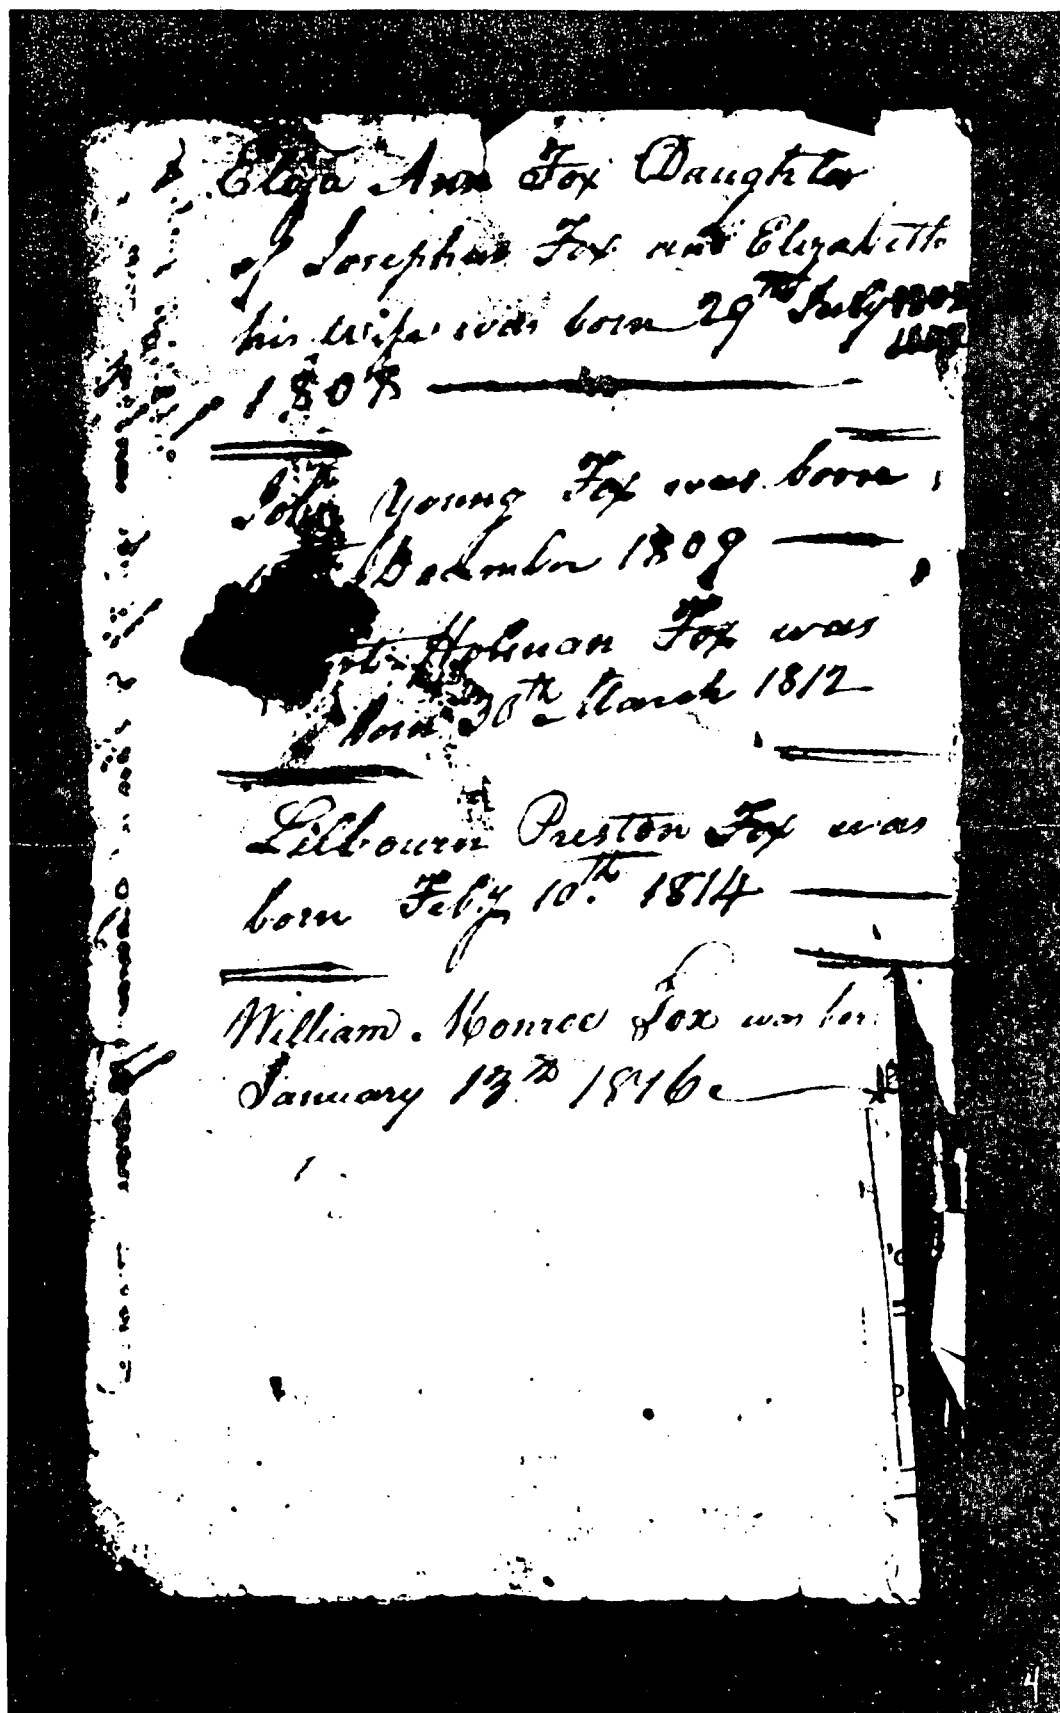 Eliza Ann Fox Daughter
of Josephus Fox and Elizabeth
his wife was born 29th July
180
John Young Fox was born
December 1809
Holman Fox was
born 30th March 1812
Lilbourn Preston Fox was
born Feby 10th 1814
William Monroe Fox was bor
January 13th 1816
4